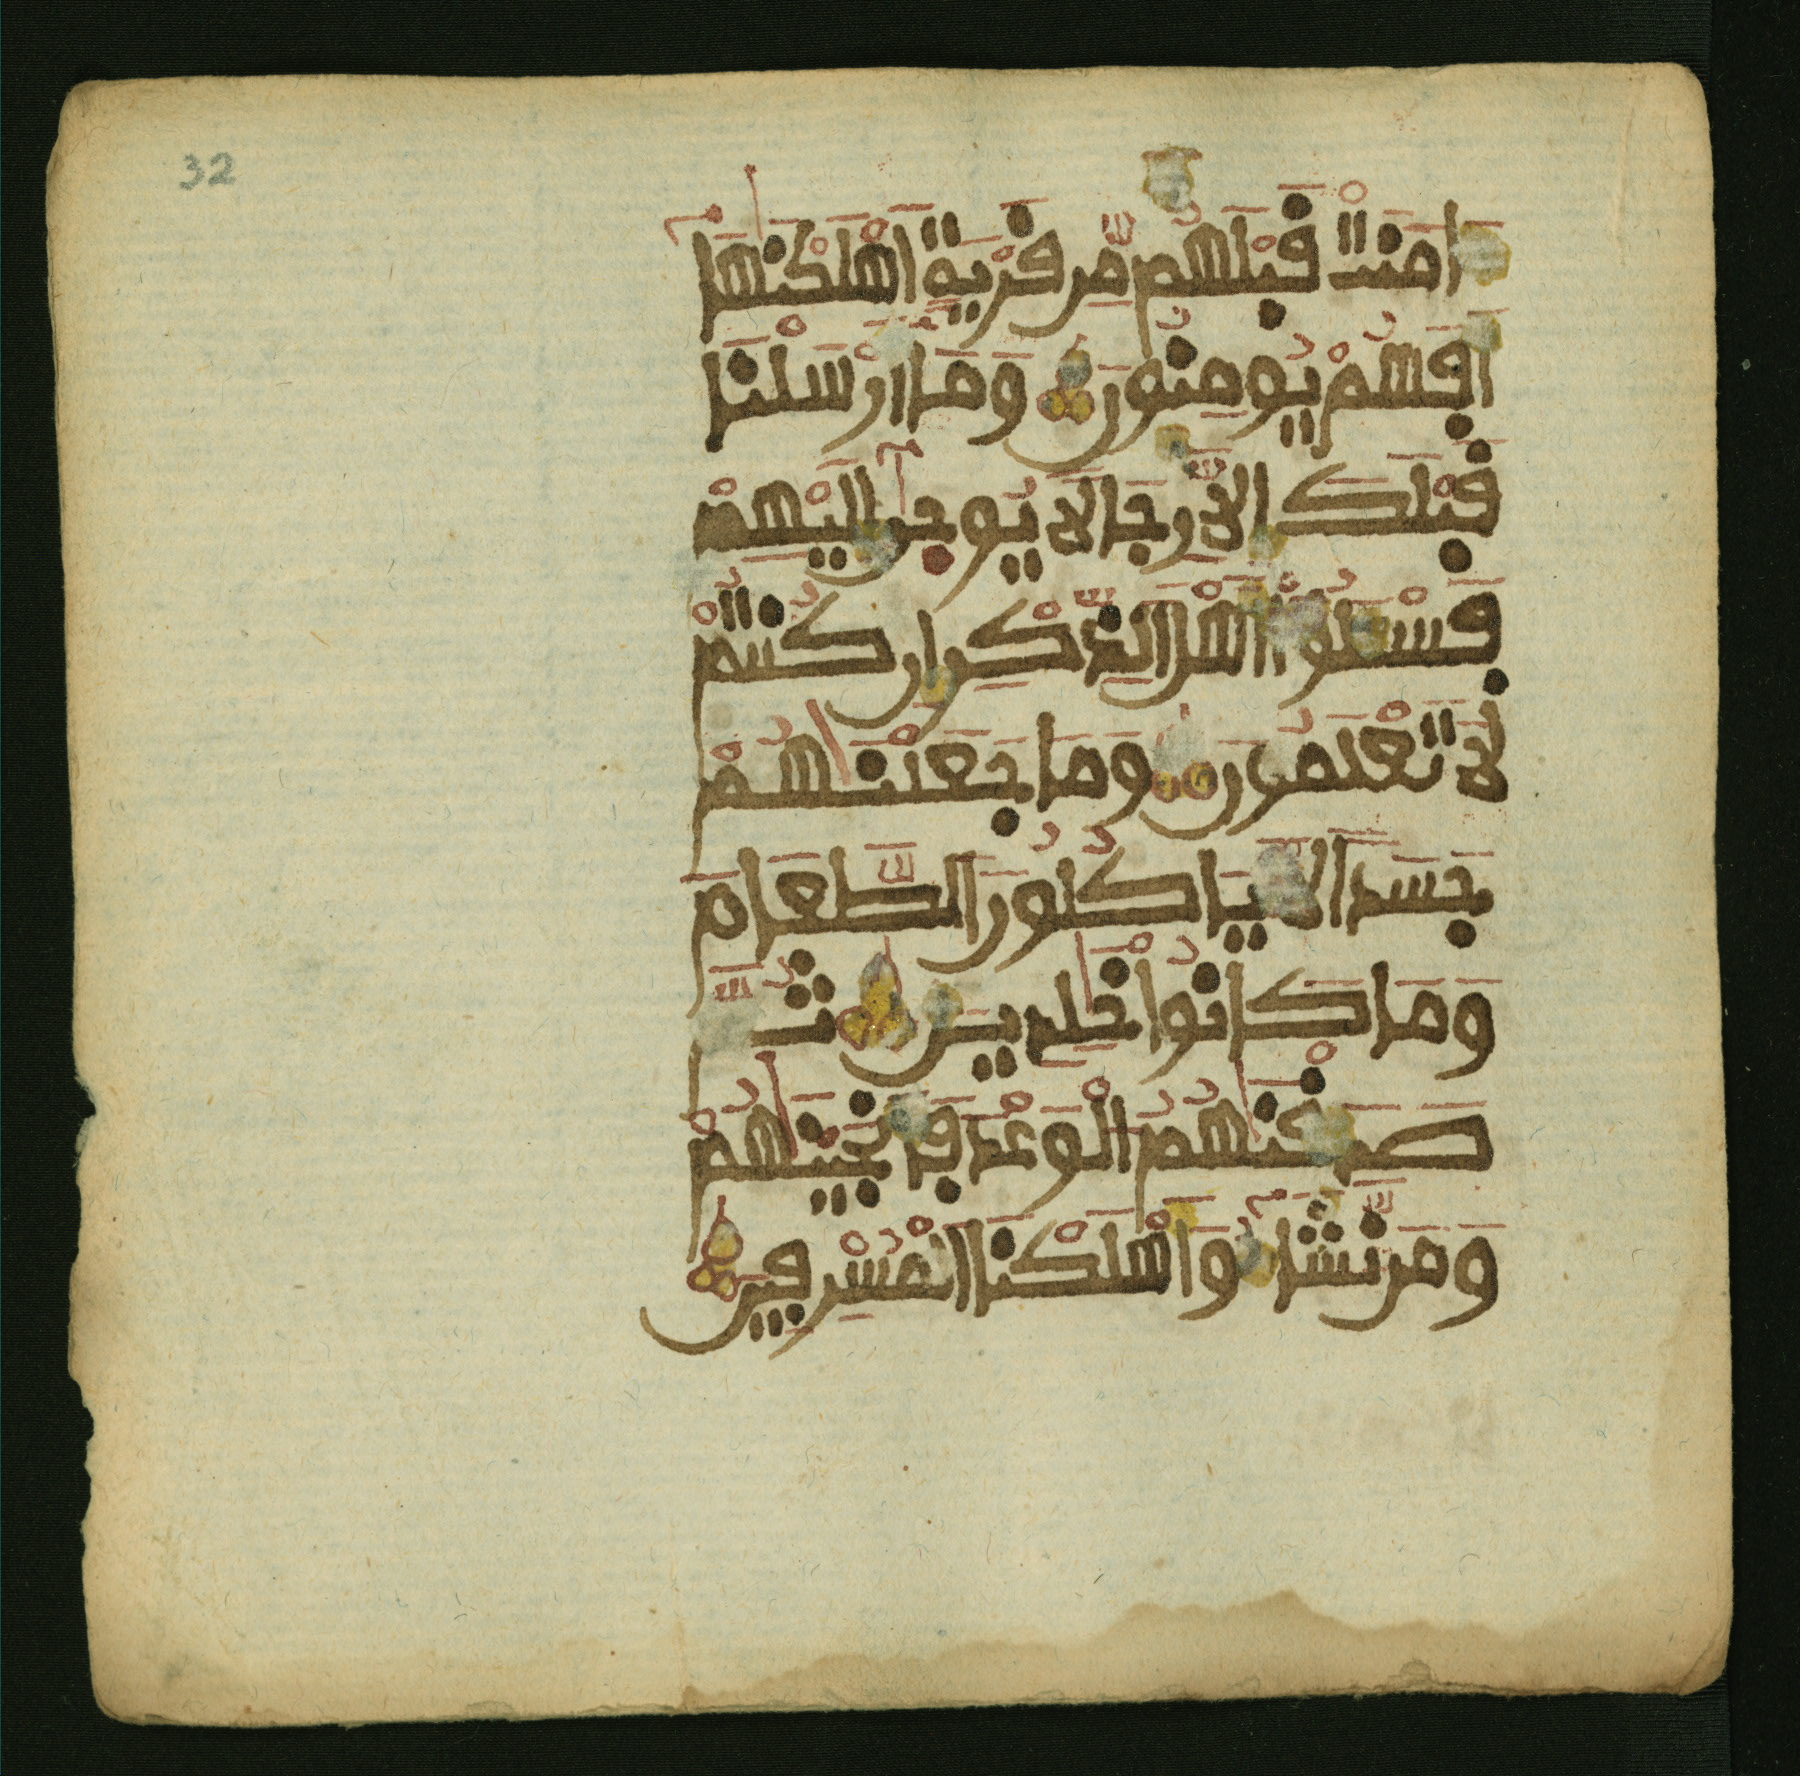 32
امنت قبلهم من قرية اهلكنها
افهم يومنون وما ارسلنا
قبلك الا رجالا يوحى اليهم
فسلوا اهل الذكر ان كنتم
لا تعلمون وما جعلنهم
جسدا لا ياكلون الطعام
وما كانوا خلدين ثم
صدقنهم الوعد فانجينهم
ومن نشا واهلكنا المسرفين